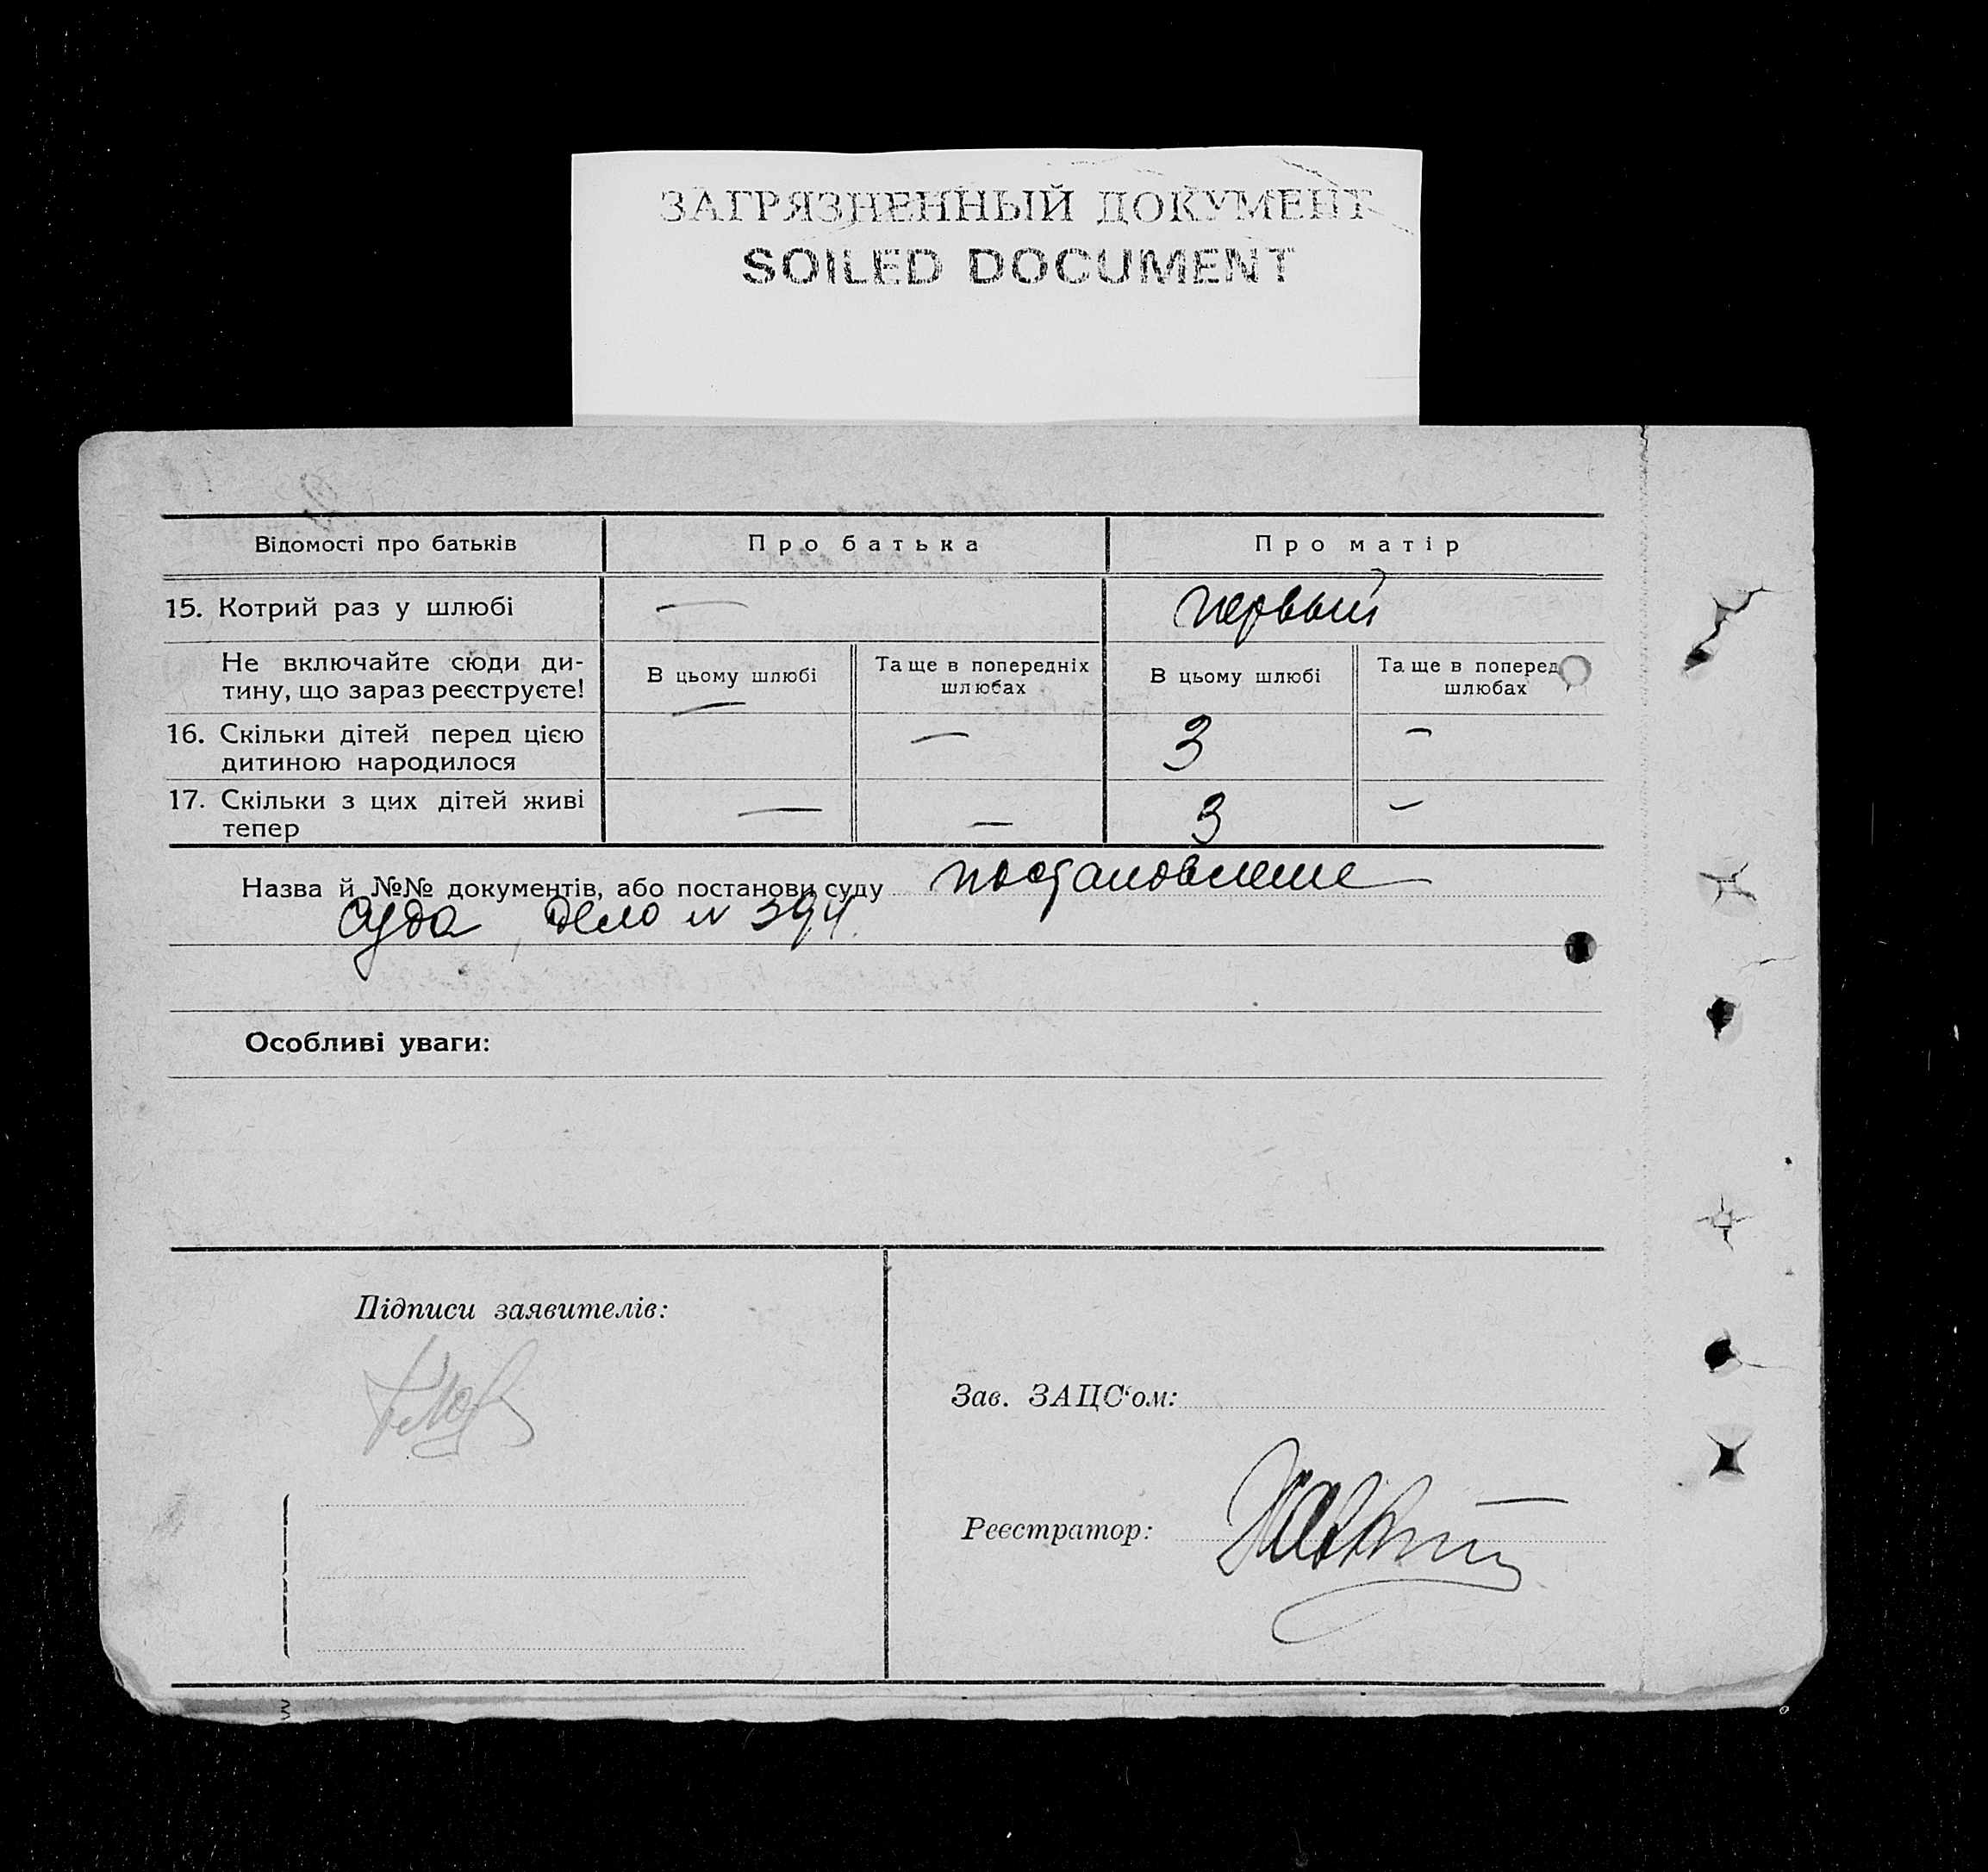 ЗАГРЯЗНЕННЫЙ ДОКУМЕНТ
SOILED DOCUMENT
Відомості про батьків Про батька Про матір
15. Котрий раз у шлюбі — первый
Не включайте сюди ди-
тину, що зараз реєструєте!
В цьому шлюбі —
Та ще в попередніх
шлюбах
В цьому шлюбі
Та ще в поперед
шлюбах
16. Скільки дітей перед цією
дитиною народилося
— 3 —
17. Скільки з цих дітей живі
тепер
— — 3 —
Назва й №№ документів, або постанови суду постановление
суда, дело N 394.
Особливі уваги:
Підписи заявителів:
Зав. ЗАЦС‘ом:
Реєстратор: